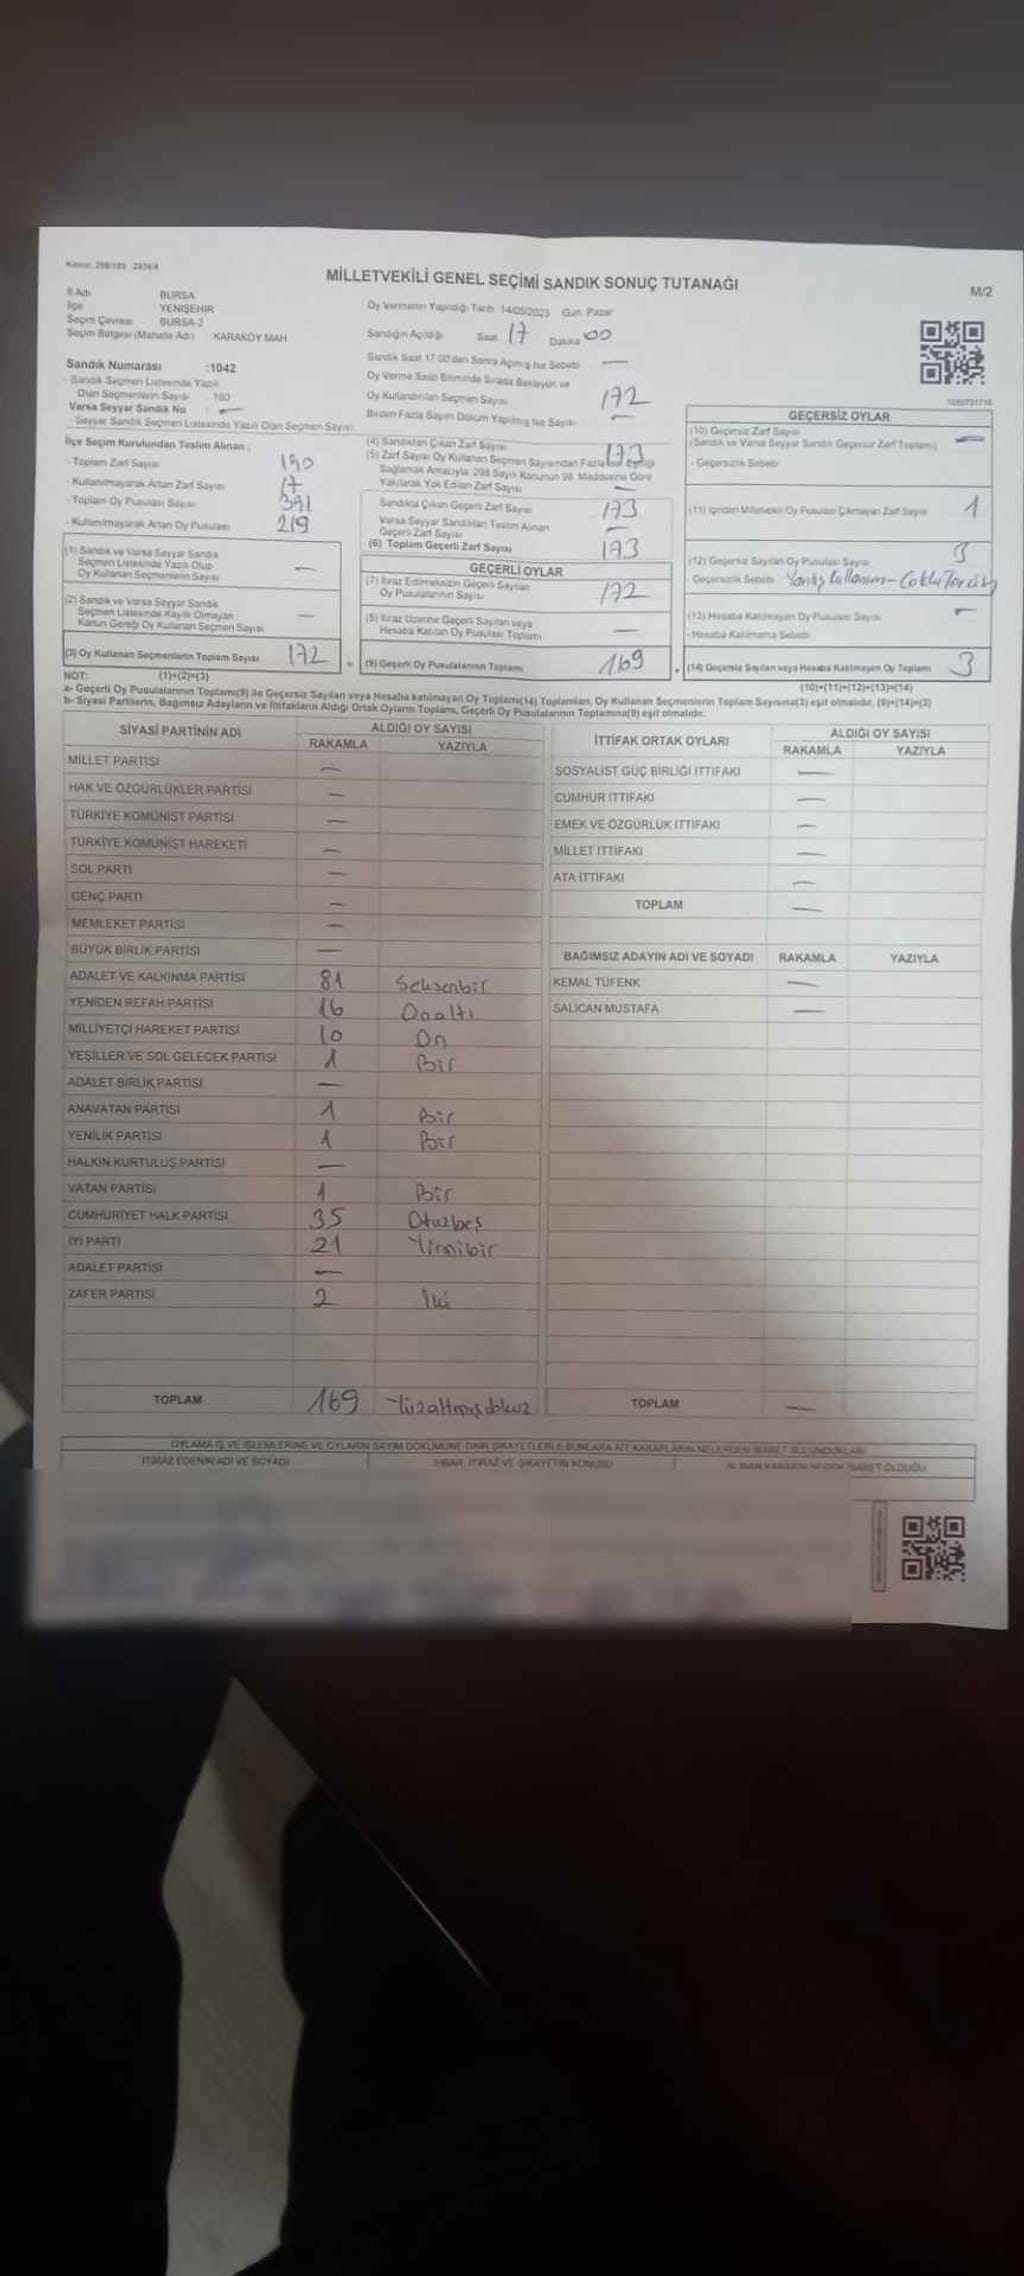 MİLLETVEKİLİ GENEL SEÇİMİ SANDIK SONUÇ TUTANAĞI
M/2
İl Adı BURSA
İlçe YENİŞEHİR
Seçim Çevresi BURSA-2
Seçim Bölgesi (Mahalle Adı) KARAKÖY MAH
Sandık Numarası :1042
- Sandık Seçmen Listesinde Yazılı
Olan Seçmenlerin Sayısı
Varsa Seyyar Sandık No : —
- Seyyar Sandık Seçmen Listesinde Yazılı Olan Seçmen Sayısı
İlçe Seçim Kurulundan Teslim Alınan :
- Toplam Zarf Sayısı 190
- Kullanılmayarak Artan Zarf Sayısı 17
- Toplam Oy Pusulası Sayısı 391
- Kullanılmayarak Artan Oy Pusulası 219
(1) Sandık ve Varsa Seyyar Sandık
Seçmen Listesinde Yazılı Olup
Oy Kullanan Seçmenlerin Sayısı —
(2) Sandık ve Varsa Seyyar Sandık
Seçmen Listesinde Kayıtlı Olmayan
Kanun Gereği Oy Kullanan Seçmen Sayısı —
(3) Oy Kullanan Seçmenlerin Toplam Sayısı 172
Oy Vermenin Yapıldığı Tarih: 14/05/2023 Gün: Pazar
Sandığın Açıldığı Saat 17 Dakika 00
Sandık Saat 17:00'dan Sonra Açılmış İse Sebebi —
Oy Verme Saati Bitiminde Sırada Bekleyen ve
Oy Kullandırılan Seçmen Sayısı 172
Birden Fazla Sayım Döküm Yapılmış İse Sayısı —
(4) Sandıktan Çıkan Zarf Sayısı 173
(5) Zarf Sayısı Oy Kullanan Seçmen Sayısından Fazla İse Eşitliği
Sağlamak Amacıyla, 298 Sayılı Kanunun 98. Maddesine Göre
Yakılarak Yok Edilen Zarf Sayısı —
Sandıkta Çıkan Geçerli Zarf Sayısı 173
Varsa Seyyar Sandıktan Teslim Alınan
Geçerli Zarf Sayısı —
(6) Toplam Geçerli Zarf Sayısı 173
GEÇERLİ OYLAR
(7) İtiraz Edilmeksizin Geçerli Sayılan
Oy Pusulalarının Sayısı 172
(8) İtiraz Üzerine Geçerli Sayılan veya
Hesaba Katılan Oy Pusulası Toplamı —
(9) Geçerli Oy Pusulalarının Toplamı 169
GEÇERSİZ OYLAR
(10) Geçersiz Zarf Sayısı
(Sandık ve Varsa Seyyar Sandık Geçersiz Zarf Toplamı) —
- Geçersizlik Sebebi
(11) İçinden Milletvekili Oy Pusulası Çıkmayan Zarf Sayısı 1
(12) Geçersiz Sayılan Oy Pusulası Sayısı 3
- Geçersizlik Sebebi Yanlış Kullanım - Çoklu Tercih
(13) Hesaba Katılmayan Oy Pusulası Sayısı —
- Hesaba Katılmama Sebebi
(14) Geçersiz Sayılan veya Hesaba Katılmayan Oy Toplamı 3
NOT: (1)+(2)=(3) (10)+(11)+(12)+(13)=(14)
a- Geçerli Oy Pusulalarının Toplamı(9) ile Geçersiz Sayılan veya Hesaba katılmayan Oy Toplamı(14) Toplamları, Oy Kullanan Seçmenlerin Toplam Sayısına(3) eşit olmalıdır. (9)+(14)=(3)
b- Siyasi Partilerin, Bağımsız Adayların ve İttifakların Aldığı Ortak Oyların Toplamı, Geçerli Oy Pusulalarının Toplamına(9) eşit olmalıdır.
SİYASİ PARTİNİN ADI ALDIĞI OY SAYISI
RAKAMLA YAZIYLA
MİLLET PARTİSİ —
HAK VE ÖZGÜRLÜKLER PARTİSİ —
TÜRKİYE KOMÜNİST PARTİSİ —
TÜRKİYE KOMÜNİST HAREKETİ —
SOL PARTİ —
GENÇ PARTİ —
MEMLEKET PARTİSİ —
BÜYÜK BİRLİK PARTİSİ —
ADALET VE KALKINMA PARTİSİ 81 Seksenbir
YENİDEN REFAH PARTİSİ 16 Onaltı
MİLLİYETÇİ HAREKET PARTİSİ 10 On
YEŞİLLER VE SOL GELECEK PARTİSİ 1 Bir
ADALET BİRLİK PARTİSİ —
ANAVATAN PARTİSİ 1 Bir
YENİLİK PARTİSİ 1 Bir
HALKIN KURTULUŞ PARTİSİ —
VATAN PARTİSİ 1 Bir
CUMHURİYET HALK PARTİSİ 35 Otuzbeş
İYİ PARTİ 21 Yirmibir
ADALET PARTİSİ —
ZAFER PARTİSİ 2 İki
TOPLAM 169 Yüzaltmışdokuz
İTTİFAK ORTAK OYLARI ALDIĞI OY SAYISI
RAKAMLA YAZIYLA
SOSYALİST GÜÇ BİRLİĞİ İTTİFAKI —
CUMHUR İTTİFAKI —
EMEK VE ÖZGÜRLÜK İTTİFAKI —
MİLLET İTTİFAKI —
ATA İTTİFAKI —
TOPLAM —
BAĞIMSIZ ADAYIN ADI VE SOYADI RAKAMLA YAZIYLA
KEMAL TÜFENK —
SALİCAN MUSTAFA —
TOPLAM —
OYLAMA İŞ VE İŞLEMLERİNE VE OYLARIN SAYIM DÖKÜMÜNE DAİR ŞİKAYETLERLE BUNLARA AİT KARARLARIN NELERDEN İBARET BULUNDUKLARI
İTİRAZ EDENİN ADI VE SOYADI İHBAR, İTİRAZ VE ŞİKAYETİN KONUSU